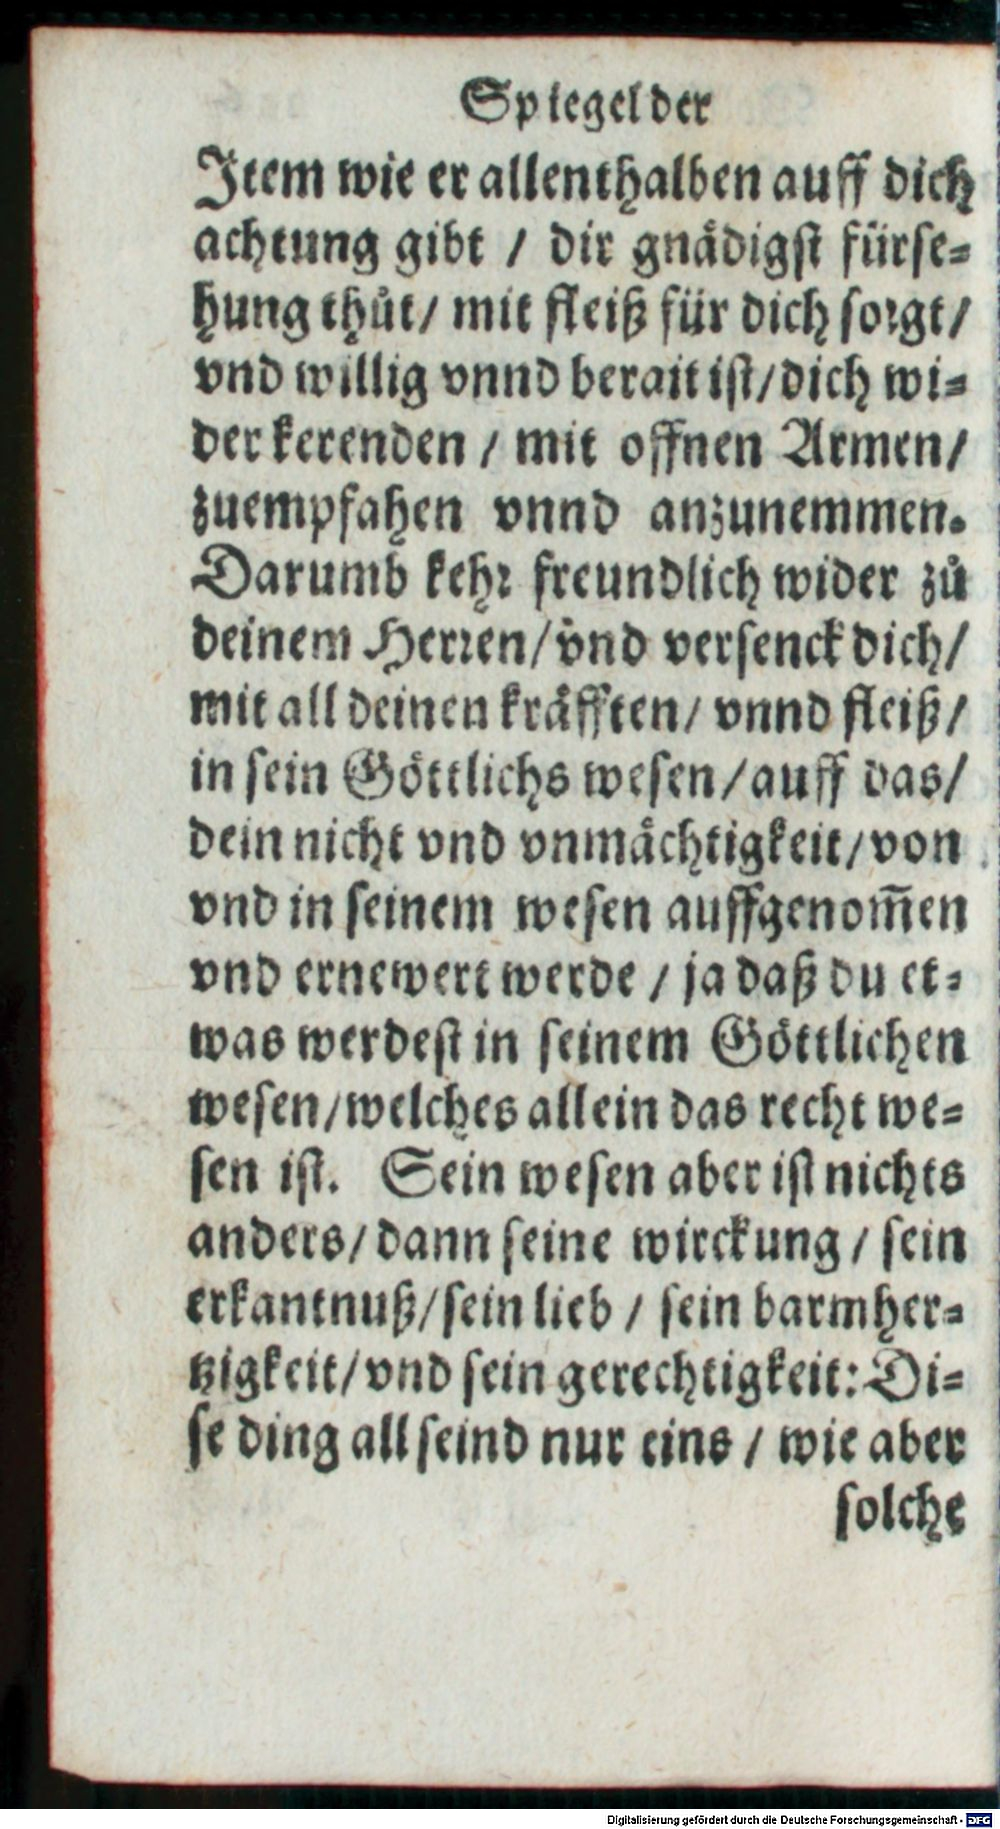 Spiegel der
Item wie er allenthalben auff dich
achtung gibt / dir gnådigst fürse-
hung thůt/ mit fleiß für dich sorgt/
vnd willig vnnd berait ist/dich wi-
der kerenden / mit offnen Armen/
zuempfahen vnnd anzunemmen.
Darumb kehr freundlich wider zů
deinem Herren/ vnd versenck dich/
mit all deinen kräfften/ vnnd fleiß/
in sein Göttlichs wesen/auff das/
dein nicht vnd vnmächtigkeit/von
vnd in seinem wesen auffgenom̃en
vnd ernewert werde / ja daß du et-
was werdest in seinem Göttlichen
wesen/welches allein das recht we-
sen ist. Sein wesen aber ist nichts
anders/dann seine wirckung / sein
erkantnuß/sein lieb / sein barmher-
tzigkeit/vnd sein gerechtigkeit: Di-
se ding all seind nur eins / wie aber
solche
Digitalisierung gefördert durch die Deutsche Forschungsgemeinschaft - DFG